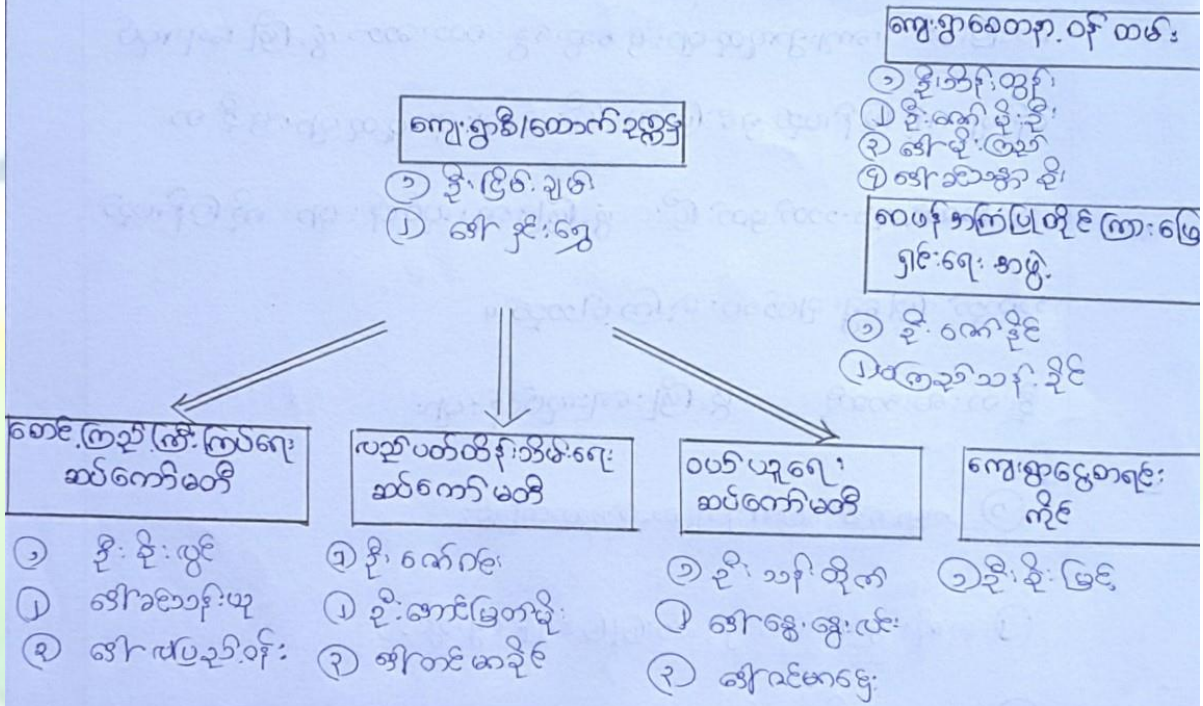 ကျေးရွာစေတနာ့ဝန်ထမ်း
၁ ဦးသိန်းထွန်း
၂ ဦးဇော်မိုးဦး
၃ ဒေါ်မိုးကြည်
၄ ဒေါ်ခင်သစ္စာစိုး
ကျေးရွာဥ/ထောက်ဥက္ကဋ္ဌ
၁ ဦးငြိမ်းချမ်း
၂ ဒေါ်နှင်းရွှေ
လေဖန်အကြံပြုတိုင်ကြားဖြေ
ရှင်းရေးအဖွဲ့
၁ ဦးဇော်နိုင်
၂ မကြည်သန်းခိုင်
စောင့်ကြည့်ကြီးကြပ်ရေး
ဆပ်ကော်မတီ
၁ ဦးစိုးလွင်
၂ ဒေါ်ခင်သန်းယု
၃ ဒေါ်လပြည့်ဝန်း
လည်ပတ်ထိန်းသိမ်းရေး
ဆပ်ကော်မတီ
၁ ဦးဇော်ဝင်း
၂ ဦးအောင်မြတ်မိုး
၃ ဒေါ်တင်မာခိုင်
ဝယ်ယူရေး
ဆပ်ကော်မတီ
၁ ဦးသန်းတိုက်
၂ ဒေါ်နွေးနွေးလင်း
၃ ဒေါ်ဇင်မာဌေး
ကျေးရွာငွေစာရင်း
ကိုင်
၁ ဦးစိုးမြင့်